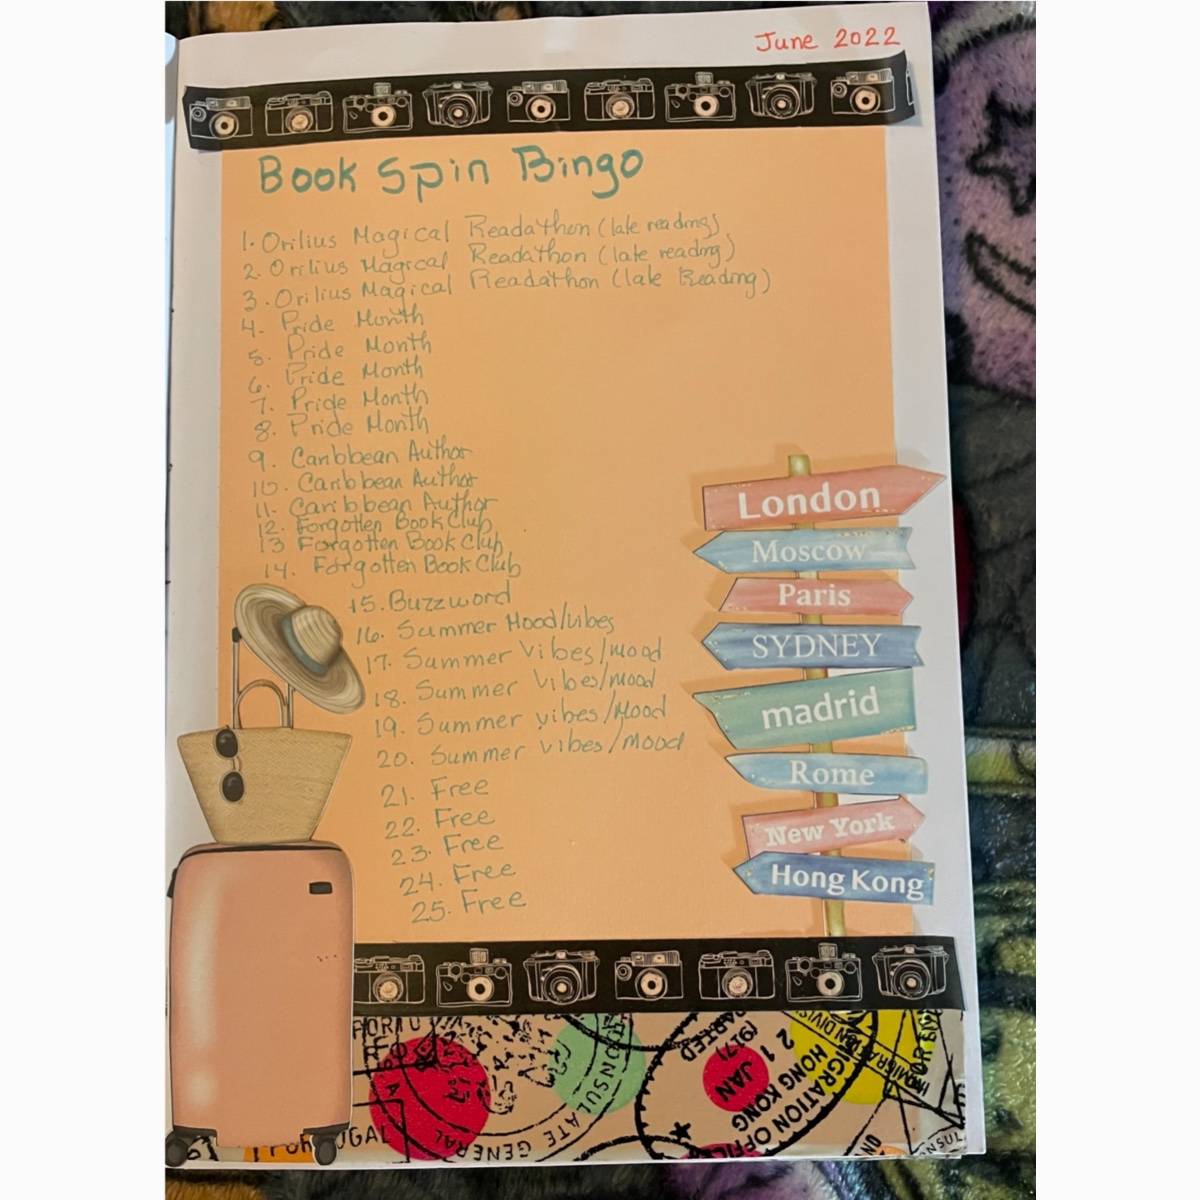 June 2022
Book Spin Bingo
1. Orilius Magical Readathon (late reading)
2. Orilius Magical Readathon (late reading)
3. Orilius Magical Readathon (late Reading)
4. Pride Month
5. Pride Month
6. Pride Month
7. Pride Month
8. Pride Month
9. Caribbean Author
10. Caribbean Author
11. Caribbean Author
12. Forgotten Book Club
13 Forgotten Book Club
14. Forgotten Book Club
15. Buzzword
16. Summer Mood/vibes
17. Summer Vibes/mood
18. Summer Vibes/mood
19. Summer vibes/Mood
20. Summer vibes/mood
21. Free
22. Free
23. Free
24. Free
25. Free
London
Moscow
Paris
SYDNEY
madrid
Rome
New York
Hong Kong
(917)
21 JAN
HONG KONG
CONSULATE GENERAL